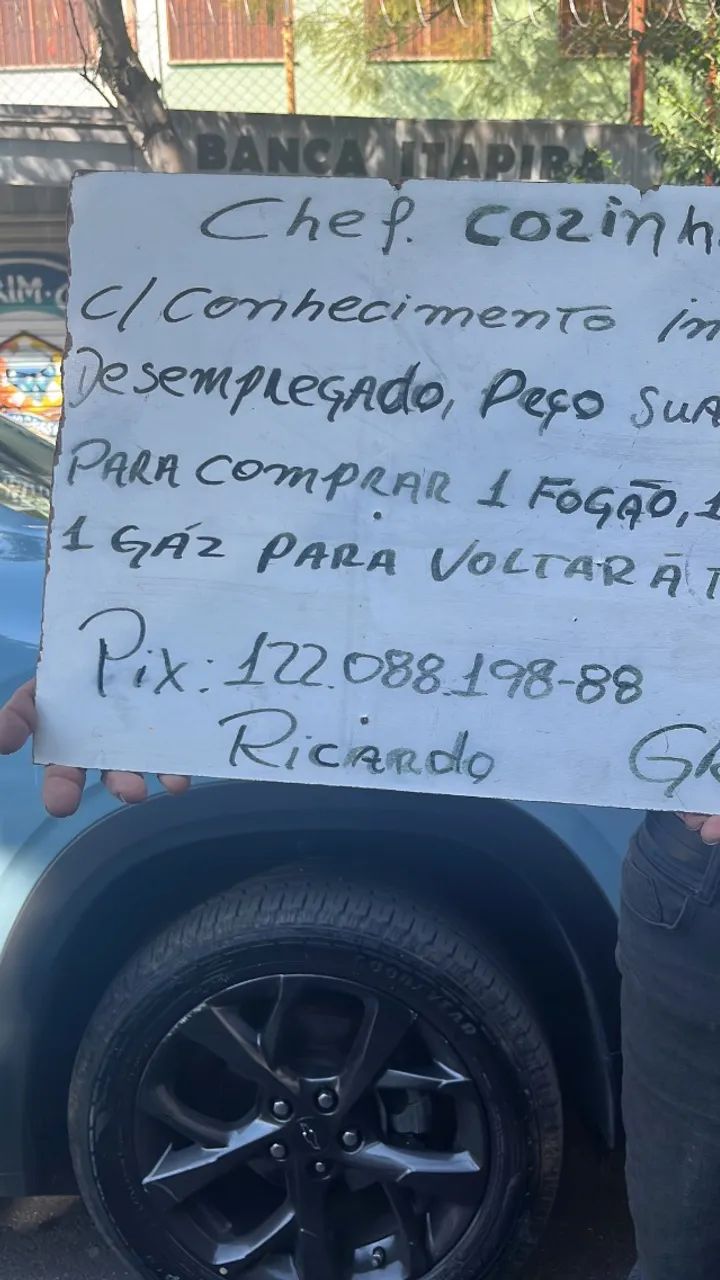 BANCA ITAPIRA
Chef. cozinh
C/ Conhecimento in
Desempregado, Peço SUA
PARA COMPRAR 1 FOGÃO, 1
1 GÁZ PARA VOLTAR Á T
Pix: 122.088.198-88
Ricardo GR
GOODYEAR